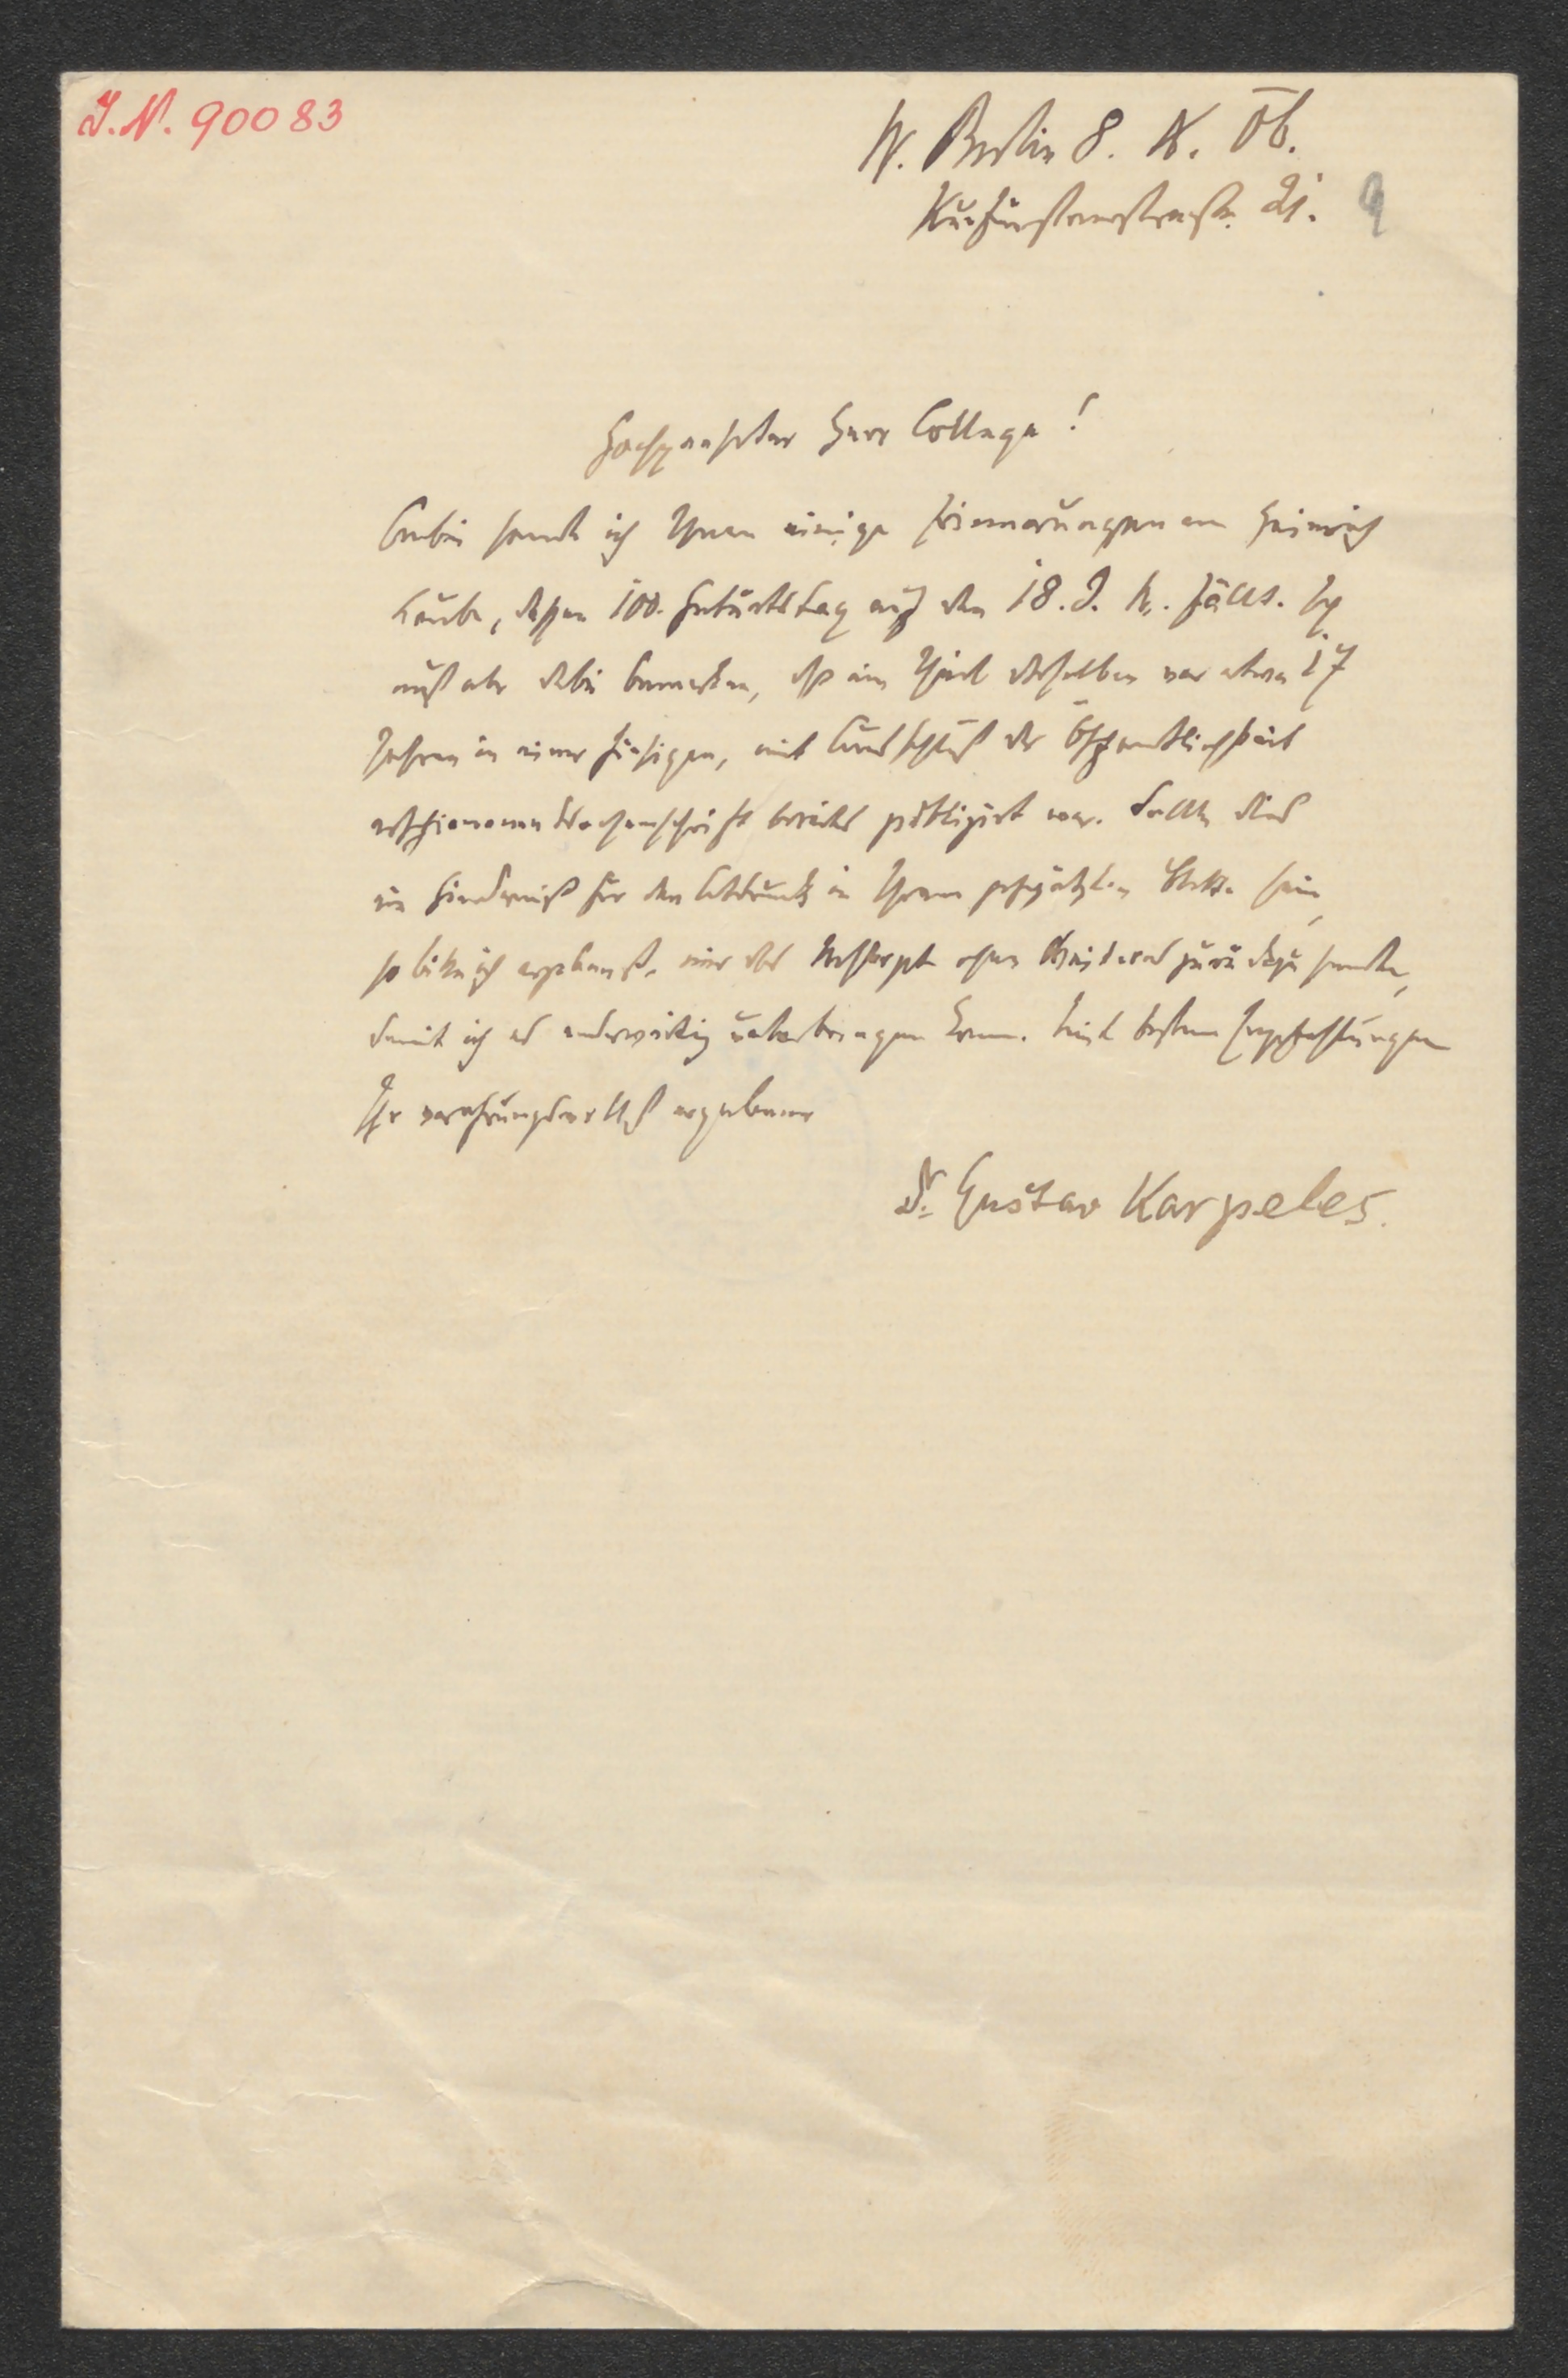 I.N. 90083
W. Berlin 8. IX. 06.
Kurfürstenstrasse 21.
Hochgeehrter Herr College!
Anbei sende ich Ihnen einige Erinnerungen an Heinrich
Laube, dessen 100. Geburtstag auf den 18. d. M. fällt. Ich
muß aber dabei bemerken, daß ein Theil derselben vor etwa 17
Jahren in einer hiesigen, mit Ausschluß der Öffentlichkeit
erschienenen Wochenschrift bereits publizirt war. Sollte dies
ein Hinderniß für den Abdruck in Ihrem geschätzten Blatte sein,
so bitte ich ergebenst, mir das Mskrpt ohne Weiteres zurückzusenden,
damit ich es anderweitig unterbringen kann. Mit besten Empfehlungen
Ihr verehrungsvollst ergebener
Dr. Gustav Karpeles.